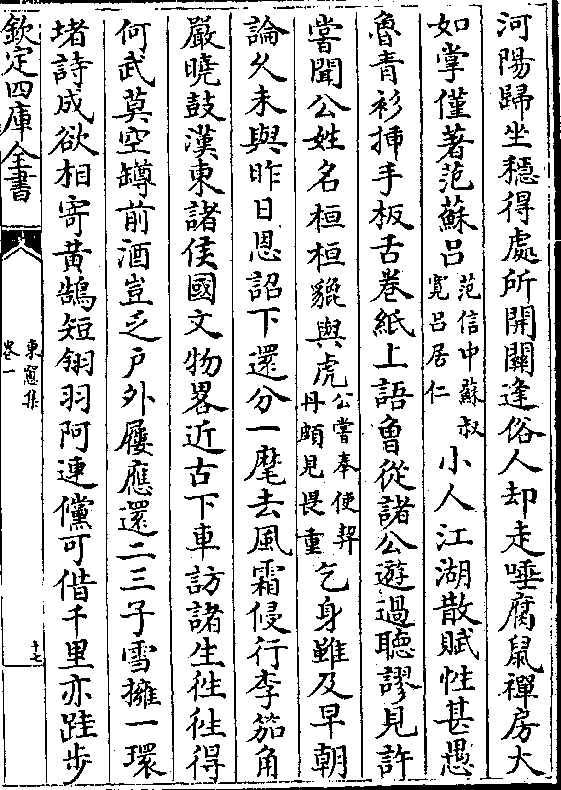 河陽歸坐穩得處所開闗逢俗人却走唾腐鼠禪房大
如掌僅著范蘇吕范信中蘇叔寛吕居仁小人江湖散賦性甚愚
魯青衫揷手板舌卷紙上語曾從諸公遊過聽謬見許
嘗聞公姓名桓桓貔與虎公嘗奉使契丹頗見畏重乞身雖及早朝
論久未與昨日恩詔下還分一麾去風霜侵行李笳角
嚴曉鼓漢東諸侯國文物畧近古下車訪諸生徃徃得
何武莫空罇前酒豈乏户外屨應還二三子雪擁一環
堵詩成欲相寄黄鵠短翎羽阿連儻可偕千里亦跬步
欽定四庫全書
東窻集
卷一
十七